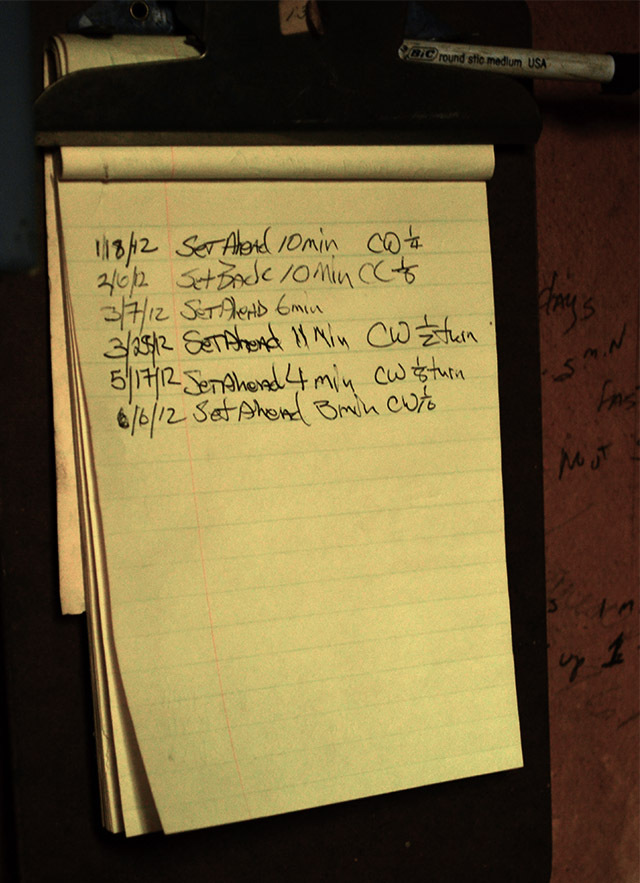 BIC round stic medium USA
1/18/12 Set Ahead 10 min CW 1/4
2/6/12 Set Back 10 Min CC 1/8
3/7/12 Set Ahead 6 min
3/25/12 Set Ahead 11 Min CW 1/2 turn
5/17/12 Set Ahead 4 min CW 1/8 turn
6/6/12 Set Ahead 3 min CW
days
5 min
up 1